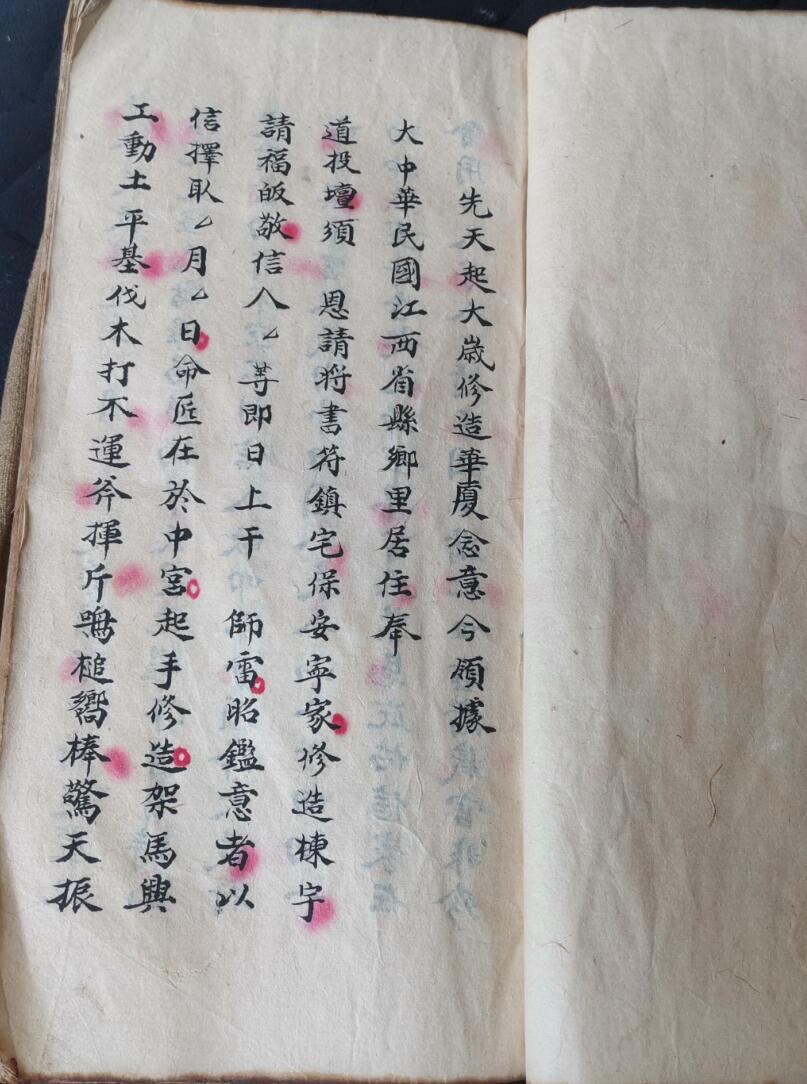 先天起大歲修造華廈念意今領據
大中華民國江西省縣鄉里居住奉
道投壇須 恩請將書符鎮宅保安寧家修造棟宇
請福皈敬信人厶等即日上干 師雷昭鑑意者以
信擇取厶月厶日命匠在於中宮起手修造架馬興
工動土平基伐木打不運斧揮斤鳴槌嚮棒驚天振